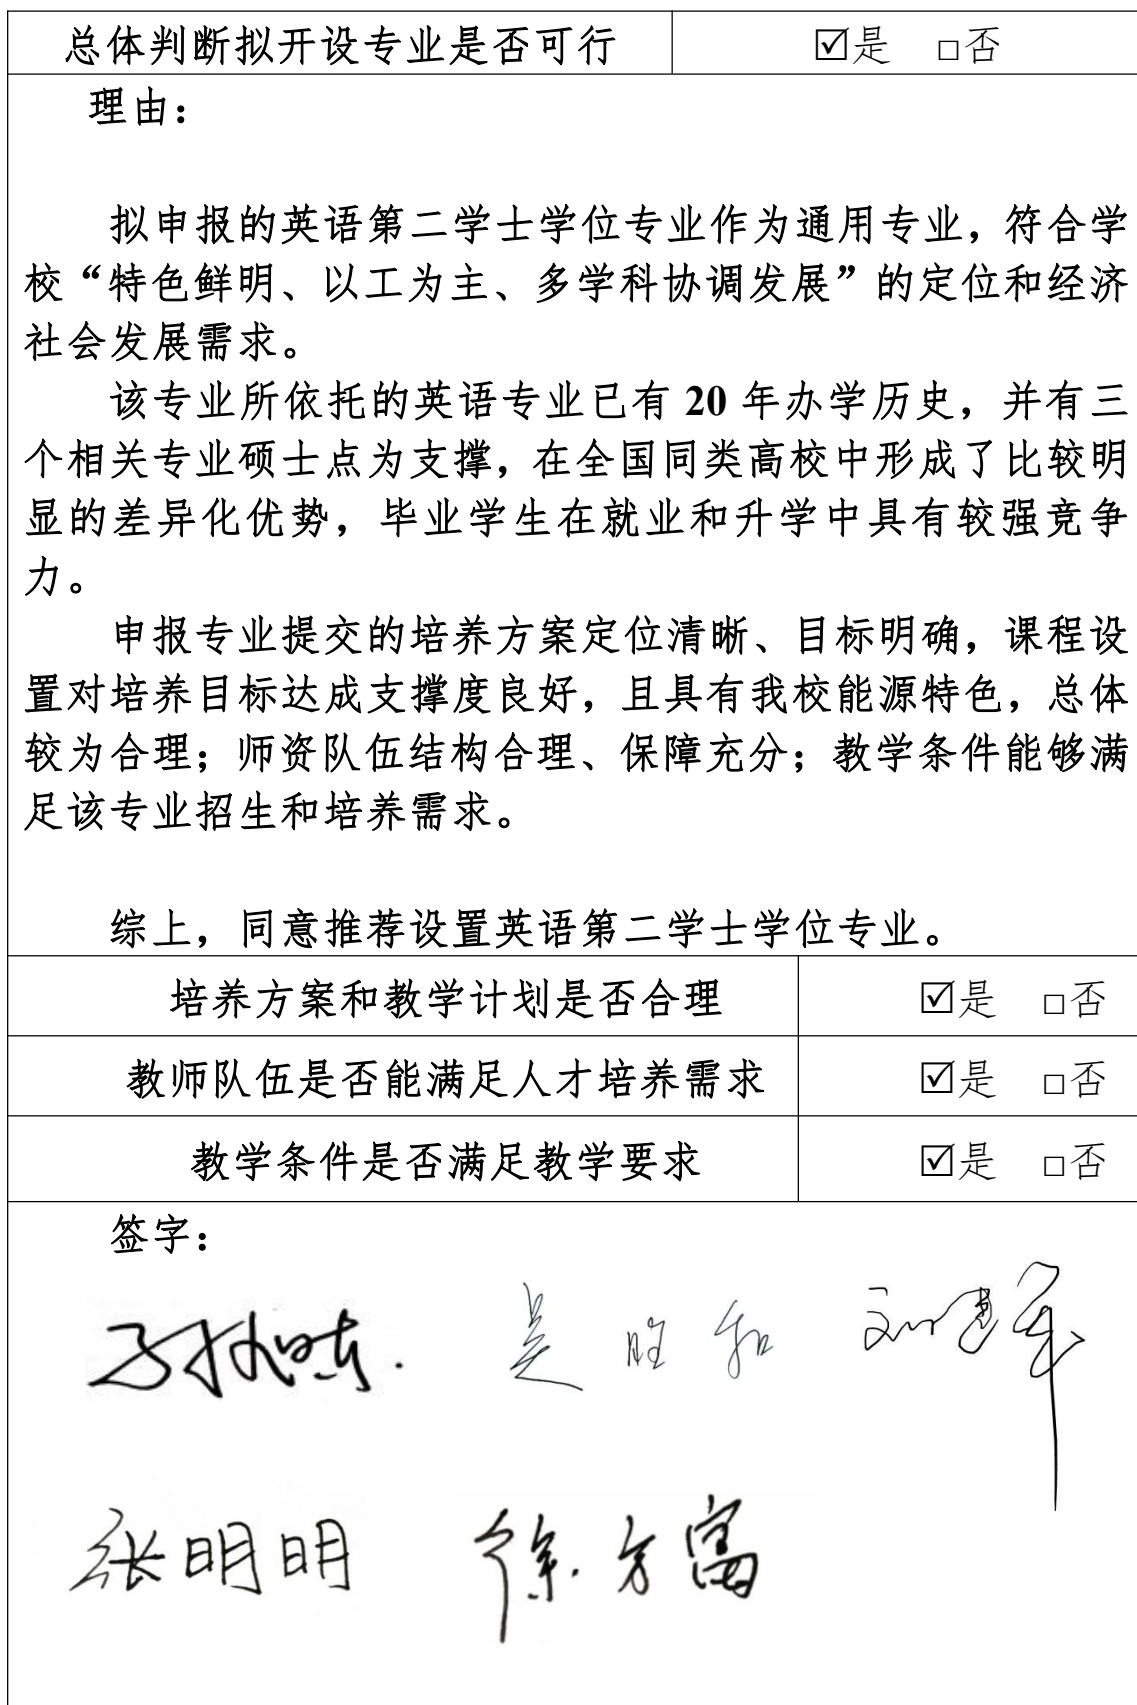 总体判断拟开设专业是否可行 ☑是 □否
理由：
拟申报的英语第二学士学位专业作为通用专业，符合学
校“特色鲜明、以工为主、多学科协调发展”的定位和经济
社会发展需求。
该专业所依托的英语专业已有 20 年办学历史，并有三
个相关专业硕士点为支撑，在全国同类高校中形成了比较明
显的差异化优势，毕业学生在就业和升学中具有较强竞争
力。
申报专业提交的培养方案定位清晰、目标明确，课程设
置对培养目标达成支撑度良好，且具有我校能源特色，总体
较为合理；师资队伍结构合理、保障充分；教学条件能够满
足该专业招生和培养需求。
综上，同意推荐设置英语第二学士学位专业。
培养方案和教学计划是否合理 ☑是 □否
教师队伍是否能满足人才培养需求 ☑是 □否
教学条件是否满足教学要求 ☑是 □否
签字：
吴胜和 刘建军
张明明 徐方富